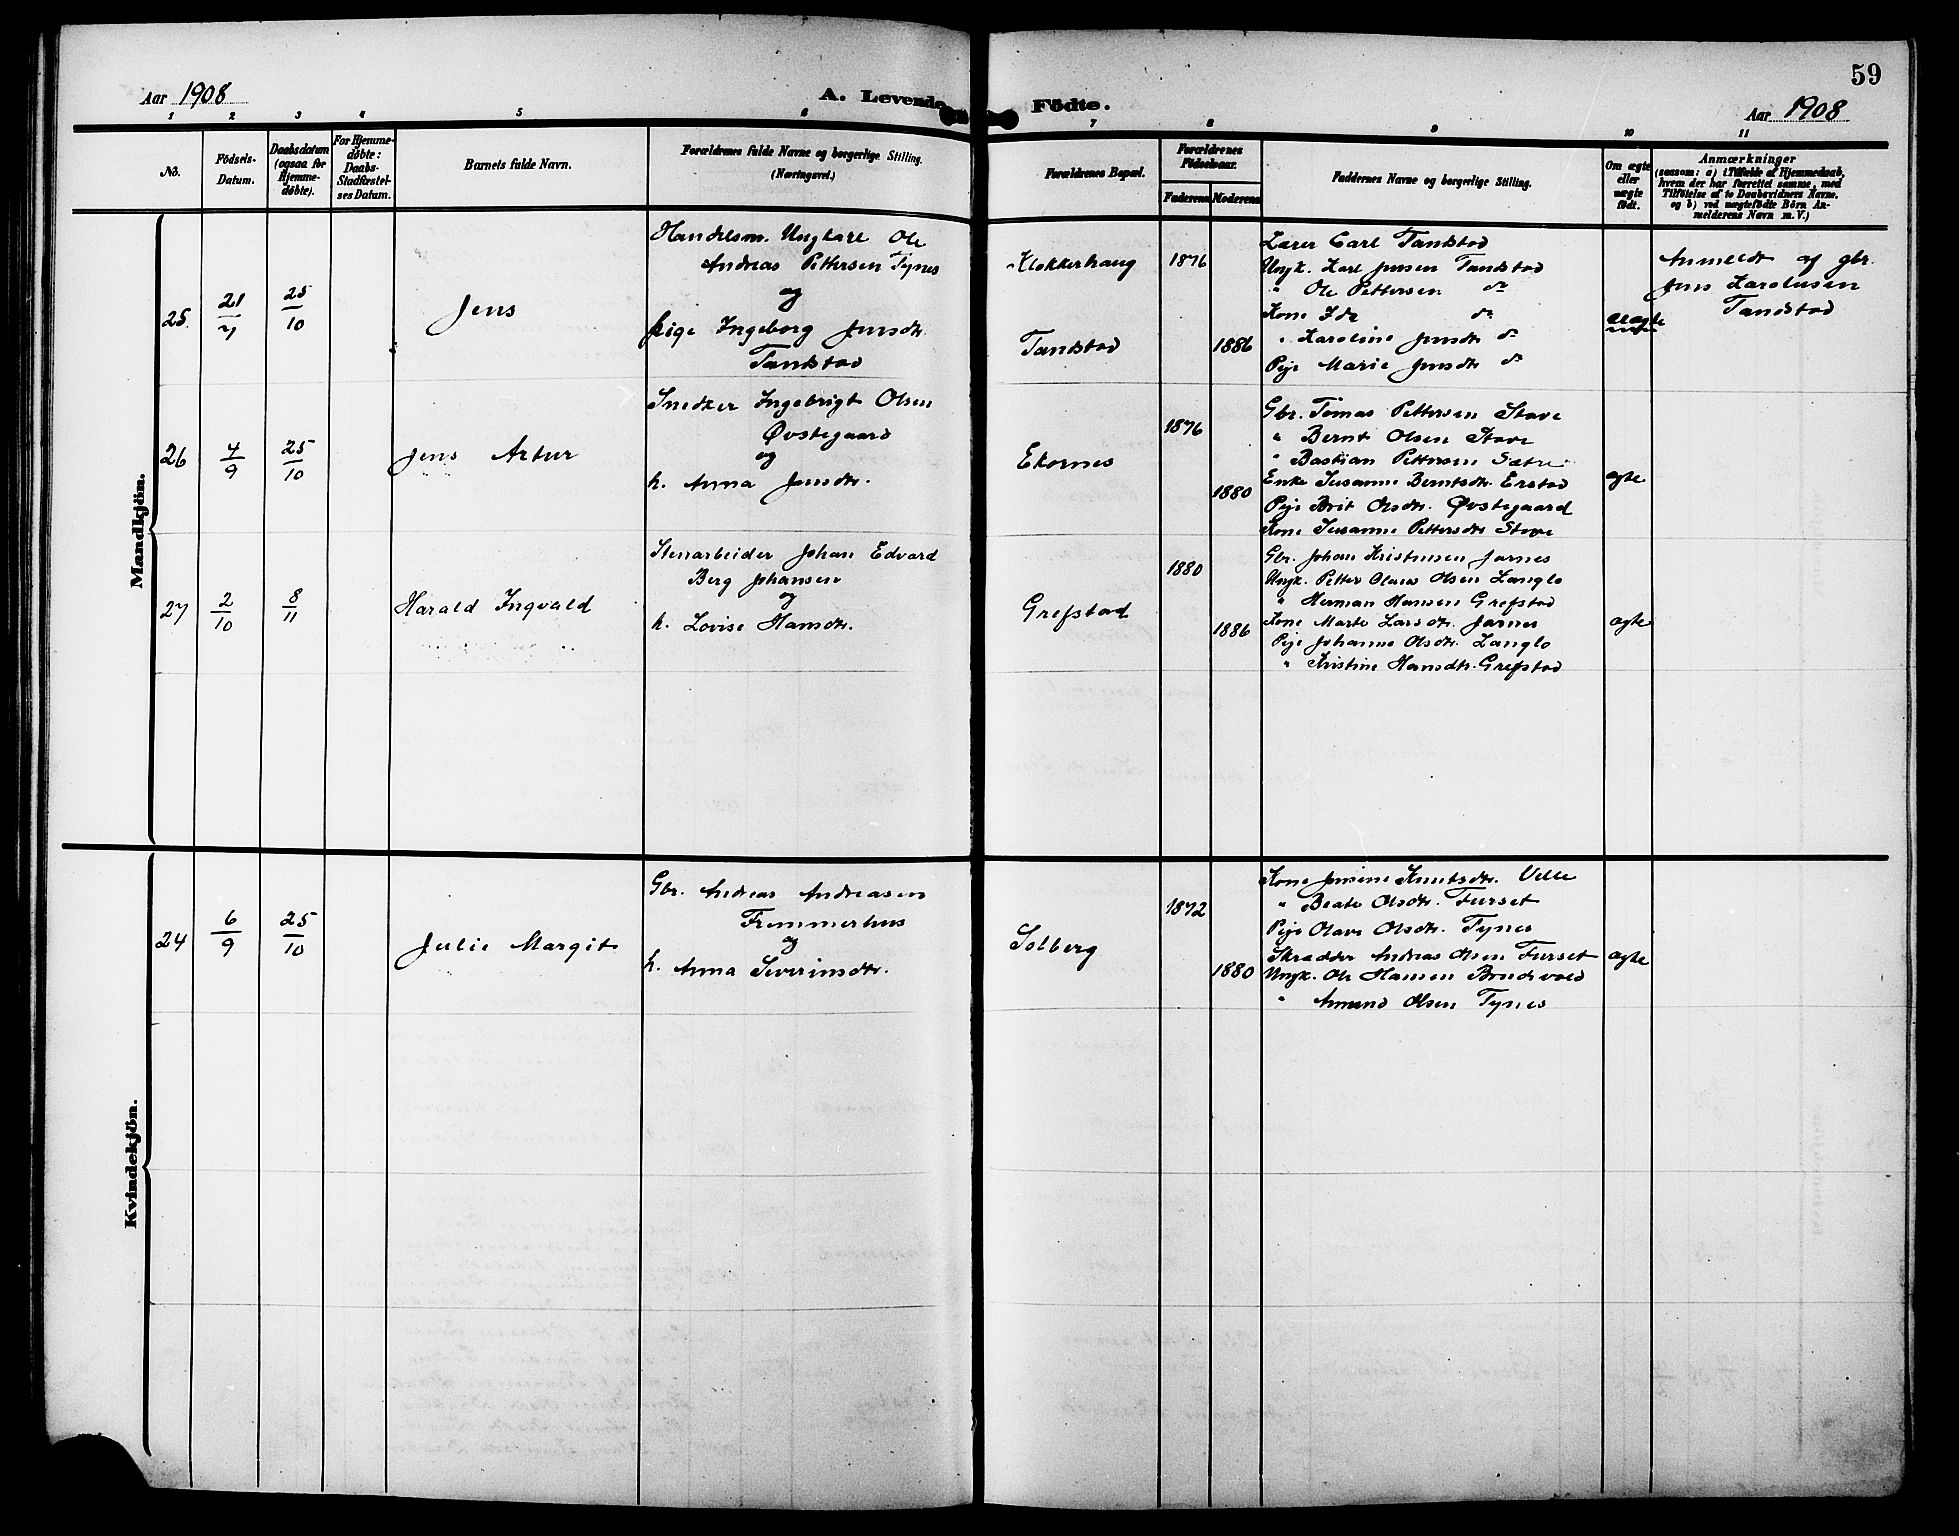 59
Aar 1908
A. Levende Födte.
Aar 1908
1 2 3 4 5 6 7 8 9 10 11
No.
Födsels-
Datum.
Daabsdatum
(ogsaa for
Hjemme-
døbte).
For Hjemme-
døbte:
Daabs-
Stadfæstel-
ses Datum.
Barnets fulde Navn.
Forældrenes fulde Navne og borgerlige Stilling.
(Næringsvei.)
Forældrenes Bopæl.
Forældrenes
Födselsaar.
Faderens
Moderens
Faddernes Navne og borgerlige Stilling.
Om ægte
eller
uægte
født.
Anmærkninger
(saasom: a) i Tilfælde af Hjemmedaab,
hvem der har forrettet samme, med
Tilföielse af to Daabsvidners Navne,
og b) ved uægtefödte Börn An-
melderens Navn m. V.)
Mandkjön.
25
21/7
25/10
Jens
Handelsm. Ungkarl Ole
Andreas Pettersen Tynes
og
Pige Ingeborg Jensdtr.
Tandstad
Klokkerhaug
Tandstad
1876
1886
Lærer Carl Tandstad
Ungk. Karl Jensen Tandstad
" Ole Pettersen do
Kone Ida do
" Karoline Jensdtr do
Pige Marie Jensdtr do
uægte
Anmeldt af gbr.
Jens Karolusen
Tandstad
26
4/9
25/10
Jens Artur
Snedker Ingebrigt Olsen
Øvstegaard
og
h. Anna Jensdtr.
Ekornes
1876
1880
Gbr. Tomas Pettersen Stave
" Bernt Olsen Stave
" Bastian Pettersen Sætre
Enke Susanne Berntsdtr. Erstad
Pige Brit Olsdtr. Øvstegaard
Kone Susanne Pettersdtr Stave
ægte
27
2/10
8/11
Harald Ingvald
Stenarbeider Johan Edvard
Berg Johansen
og
h. Lovise Hansdtr.
Grefstad
1880
1886
Gbr. Johan Kristensen Jarnes
Ungk. Petter Olaus Olsen Langlo
" Herman Hansen Grefstad
Kone Marte Larsdtr. Jarnes
Pige Johanne Olsdtr. Langlo
" Kristine Hansdtr. Grefstad
ægte
Kvindekjön.
24
6/9
25/10
Julie Margit
Gbr. Andreas Andreasen
Fremmerhus
og
h. Anna Severinsdtr.
Solberg
1872
1880
Kone Jensine Knutsdtr. Velle
" Beate Olsdtr. Furset
Pige Olave Olsdtr. Tynes
Skrædder Andreas Olsen Furset
Ungk. Ole Hansen Brudevold
" Amund Olsen Tynes
ægte